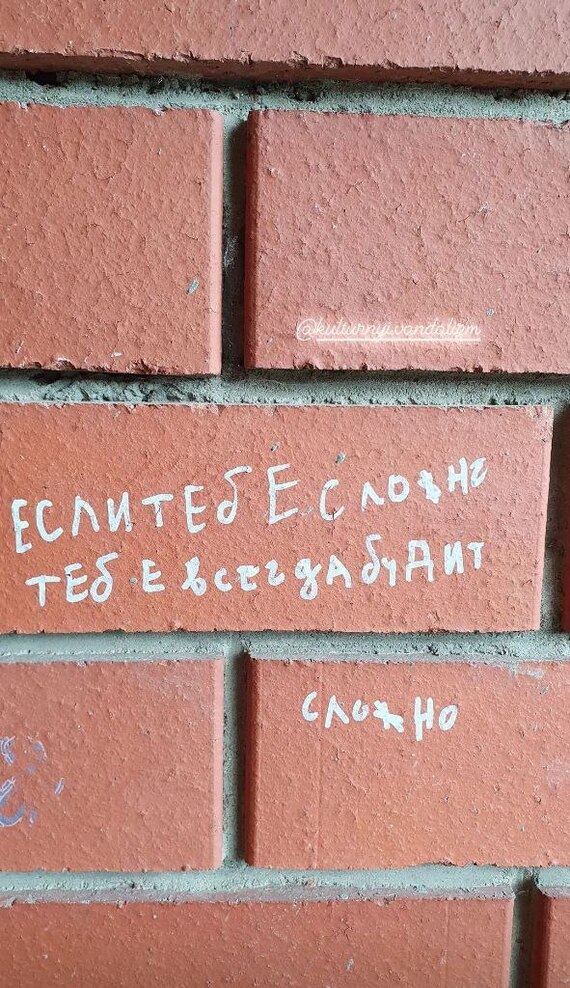 @kulturnyi.vandalizm
ЕСЛИ ТЕБЕ СЛОЖНГ
ТЕБЕ ВСЕГДА БУДИТ
СЛОЖНО